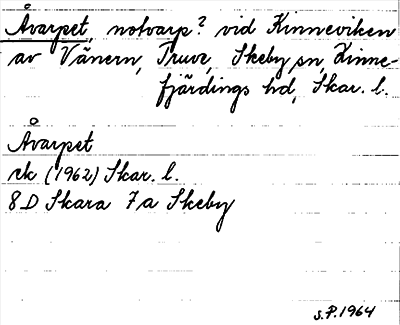 Åvarpet, notvarp? vid Kinneviken
av Vänern, Truve, Skeby sn, Kinne-
fjärdings hd, Skar. l.
Åvarpet
ek (1962) Skar. l.
8D Skara 7a Skeby
S.P. 1964